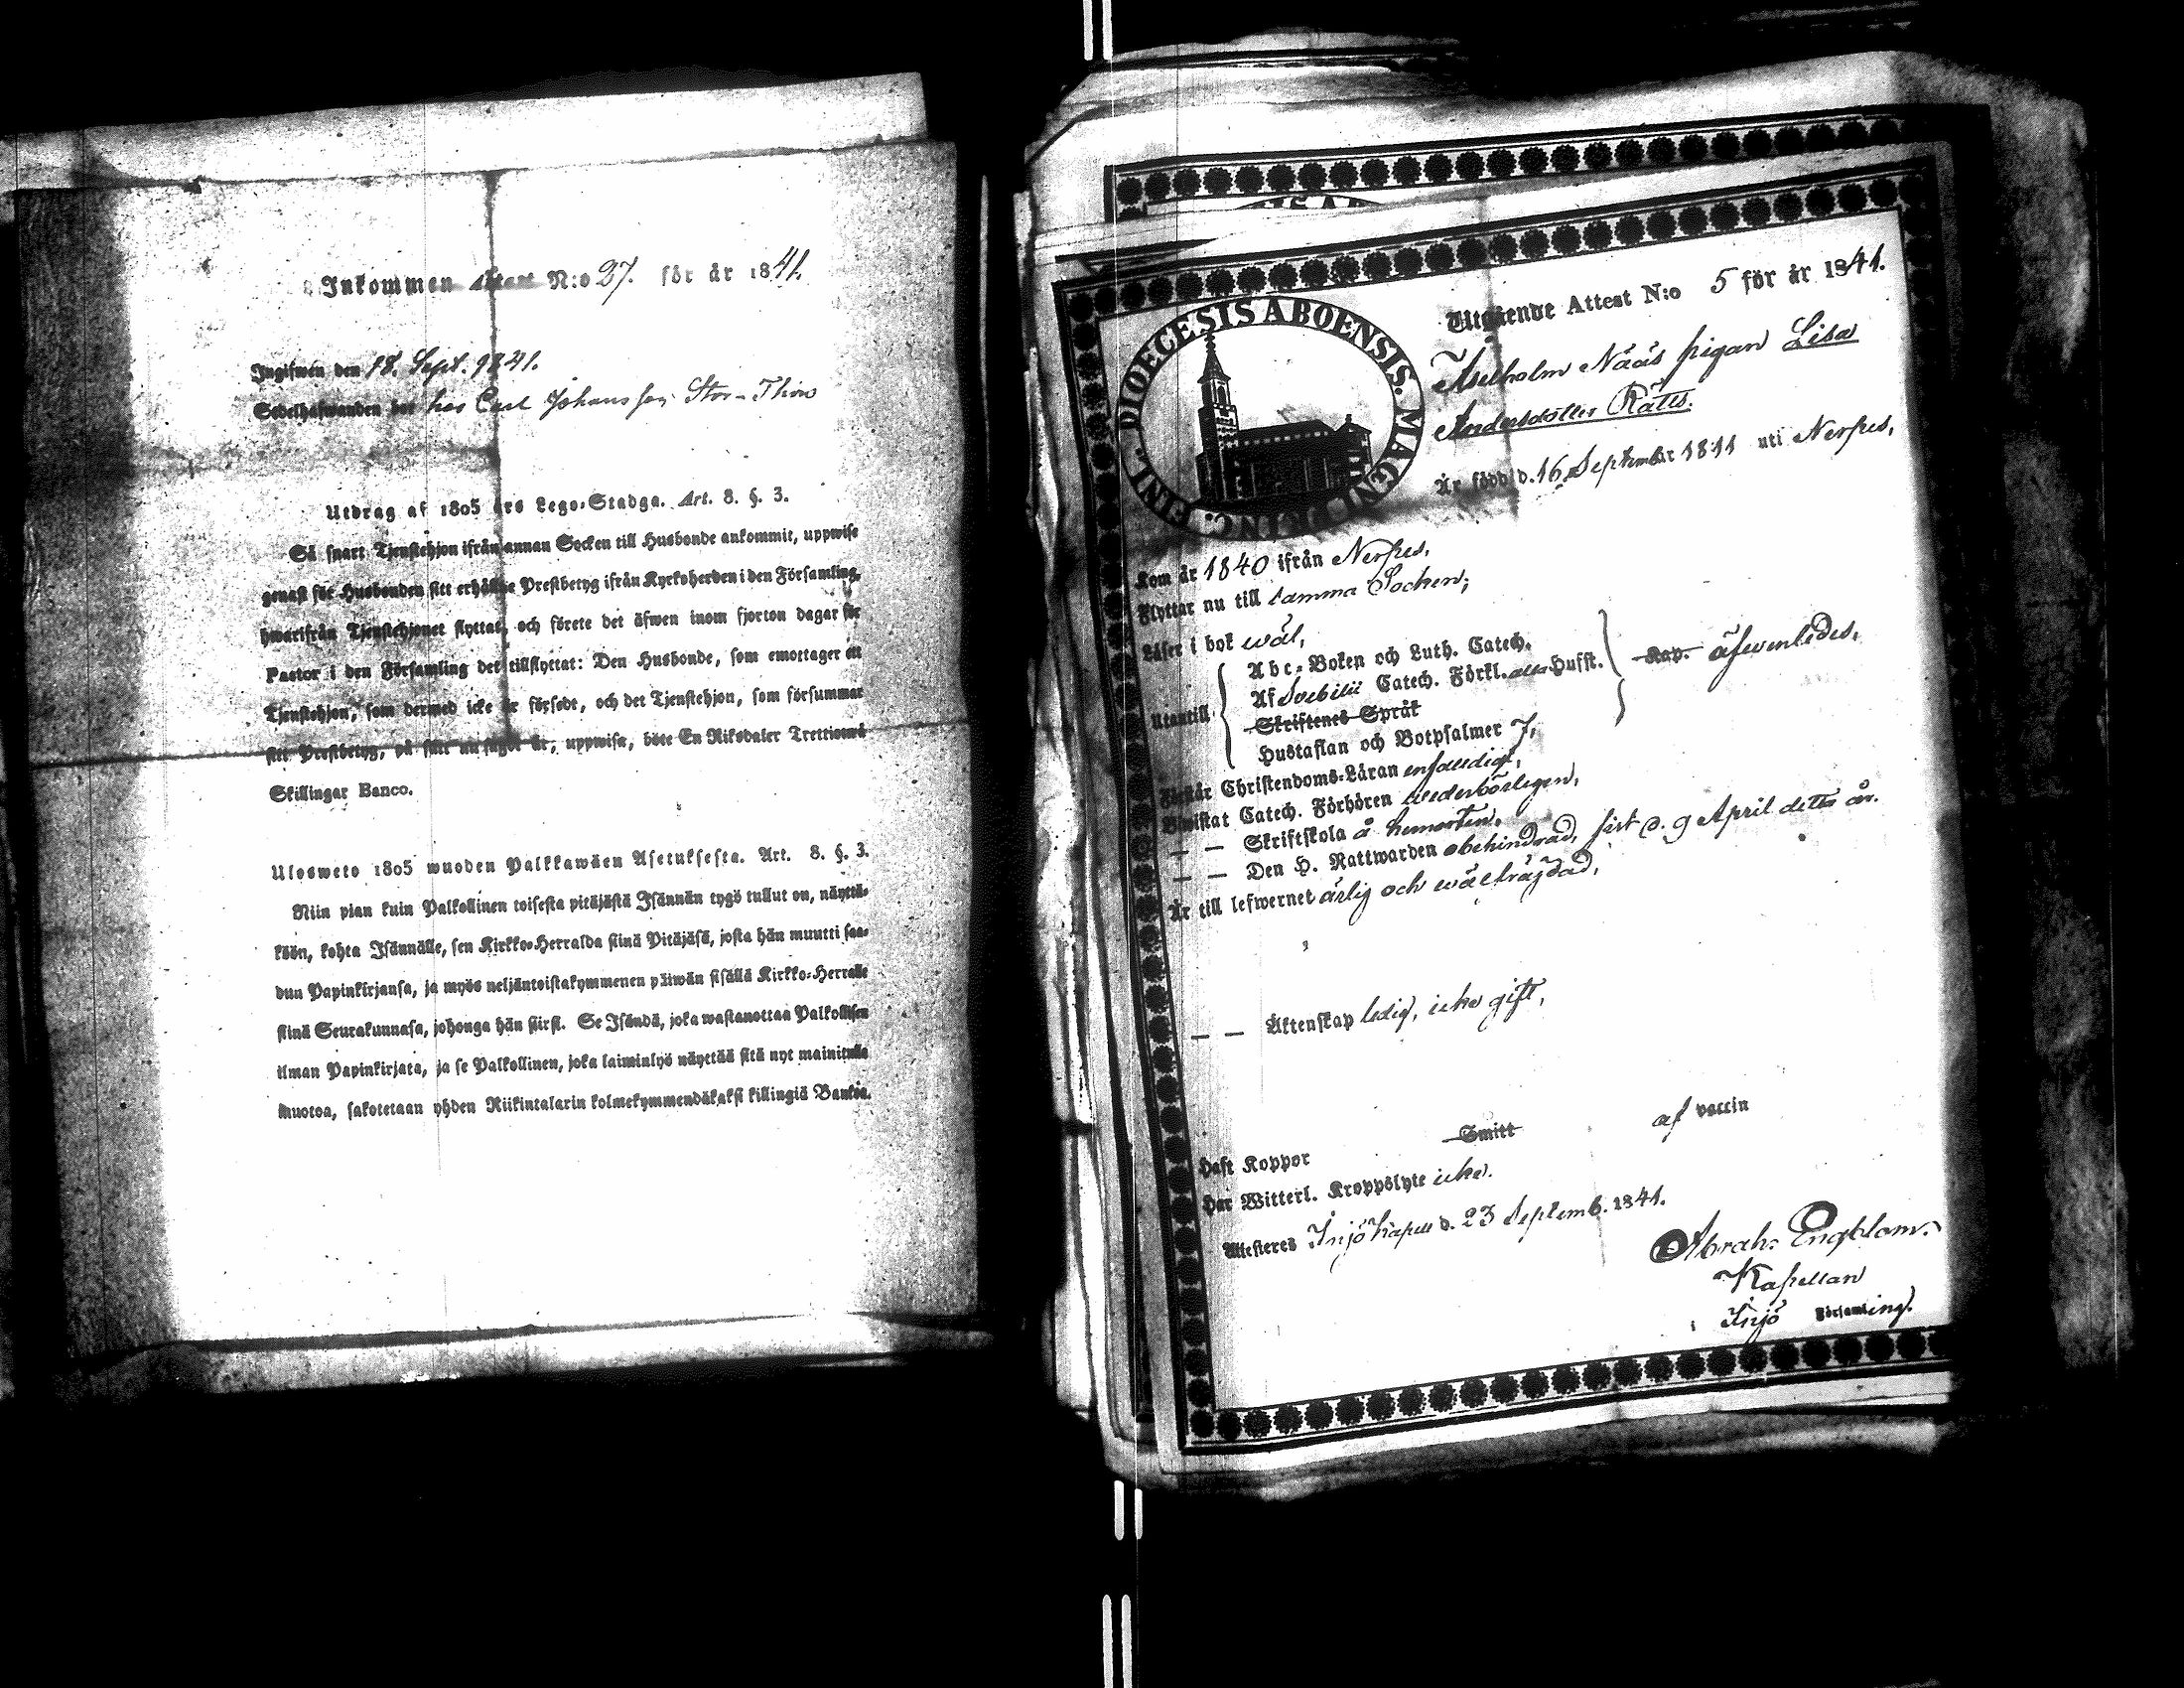 Inkommen Attest N:o 27. för år 1841.
Ingifwen den 18. Sept. 1841.
Sedelhafwanden bor hos Carl Johansson Stor-Thiw
Utdrag af 1805 års Lego-Stadga. Art. 8. §. 3.
Så snart Tjenstehjon ifrån annan Socken till Husbonde ankommit, uppwise
genast för Husbonden sitt erhållne Prestbetyg ifrån Kyrkoherden i den Församling,
hwarifrån Tjenstehjonet flyttat, och förete det äfwen inom fjorton dagar för
Pastor i den Församling det tillflyttat: Den Husbonde, som emottager ett
Tjenstehjon, som dermed icke är försedt, och det Tjenstehjon, som försummar
sitt Prestbetyg, på sätt nu sagdt är, uppwisa, böte En Riksdaler Trettiotwå
Skillingar Banco.
Ulosweto 1805 wuoden Palkkawäen Asetuksesta. Art. 8. §. 3.
Niin pian kuin Palkollinen toisesta pitäjästä Isännän tygö tullut on, näyttä-
köön, kohta Isännälle, sen Kirkko-Herralda siinä Pitäjäsä, josta hän muutti saa-
dun Papinkirjansa, ja myös neljäntoistakymmenen päiwän sisällä Kirkko-Herralle
siinä Seurakunnasa, johonga hän siirsi. Se Isändä, joka wastanottaa Palkollisen
ilman Papinkirjata, ja se Palkollinen, joka laiminlyö näyttää sitä nyt mainitulla
muotoa, sakotetaan yhden Riikintalarin kolmekymmendäkaksi killingiä Bankoa.
DIOECESIS ABOENSIS. MAGNI PRINC. FINL.
Utgående Attest N:o 5 för år 1841.
Näås pigan Lisa
Andersdotter Räfts.
Är född d. 16 September 1811 uti Nerpes,
Kom år 1840 ifrån Nerpes,
Flyttar nu till samma Socken;
Läser i bok wäl,
Utantill
Abc-Boken och Luth. Catech.
Af Svebilii Catech. Förkl. alla Hufst.
Kap. äfwenledes,
Skriftenes Språk
Hustaflan och Botpsalmer 7,
Förstår Christendoms-Läran enfaldigt,
Bewistat Catech. Förhören wederbörligen,
— — Skriftskola å hemorten,
— — Den H. Nattwarden obehindrad, sist d. 9 April detta år.
Är till lefwernet ärlig och wälfräjdad,
— — Äktenskap ledig, icke gift,
Haft Koppor Smitt af vaccin
Har Witterl. Kroppslyte icke.
Attesteres Tjöjö Kapell d. 23 Septemb. 1841.
Abrah: Engblom.
Kapellan
Församling.